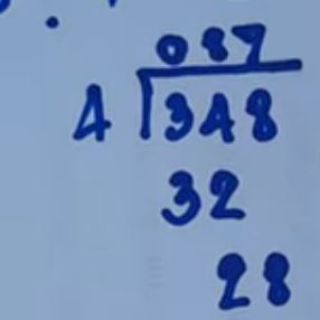 087
4 348
32
28